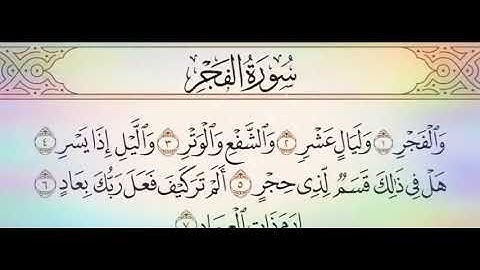 سُورَةُ الْفَجْرِ
وَالْفَجْرِ ١ وَلَيَالٍ عَشْرٍ ٢ وَالشَّفْعِ وَالْوَتْرِ ٣ وَاللَّيْلِ إِذَا يَسْرِ ٤
هَلْ فِي ذَٰلِكَ قَسَمٌ لِّذِي حِجْرٍ ٥ أَلَمْ تَرَ كَيْفَ فَعَلَ رَبُّكَ بِعَادٍ ٦
إِرَمَ ذَاتِ الْعِمَادِ ٧